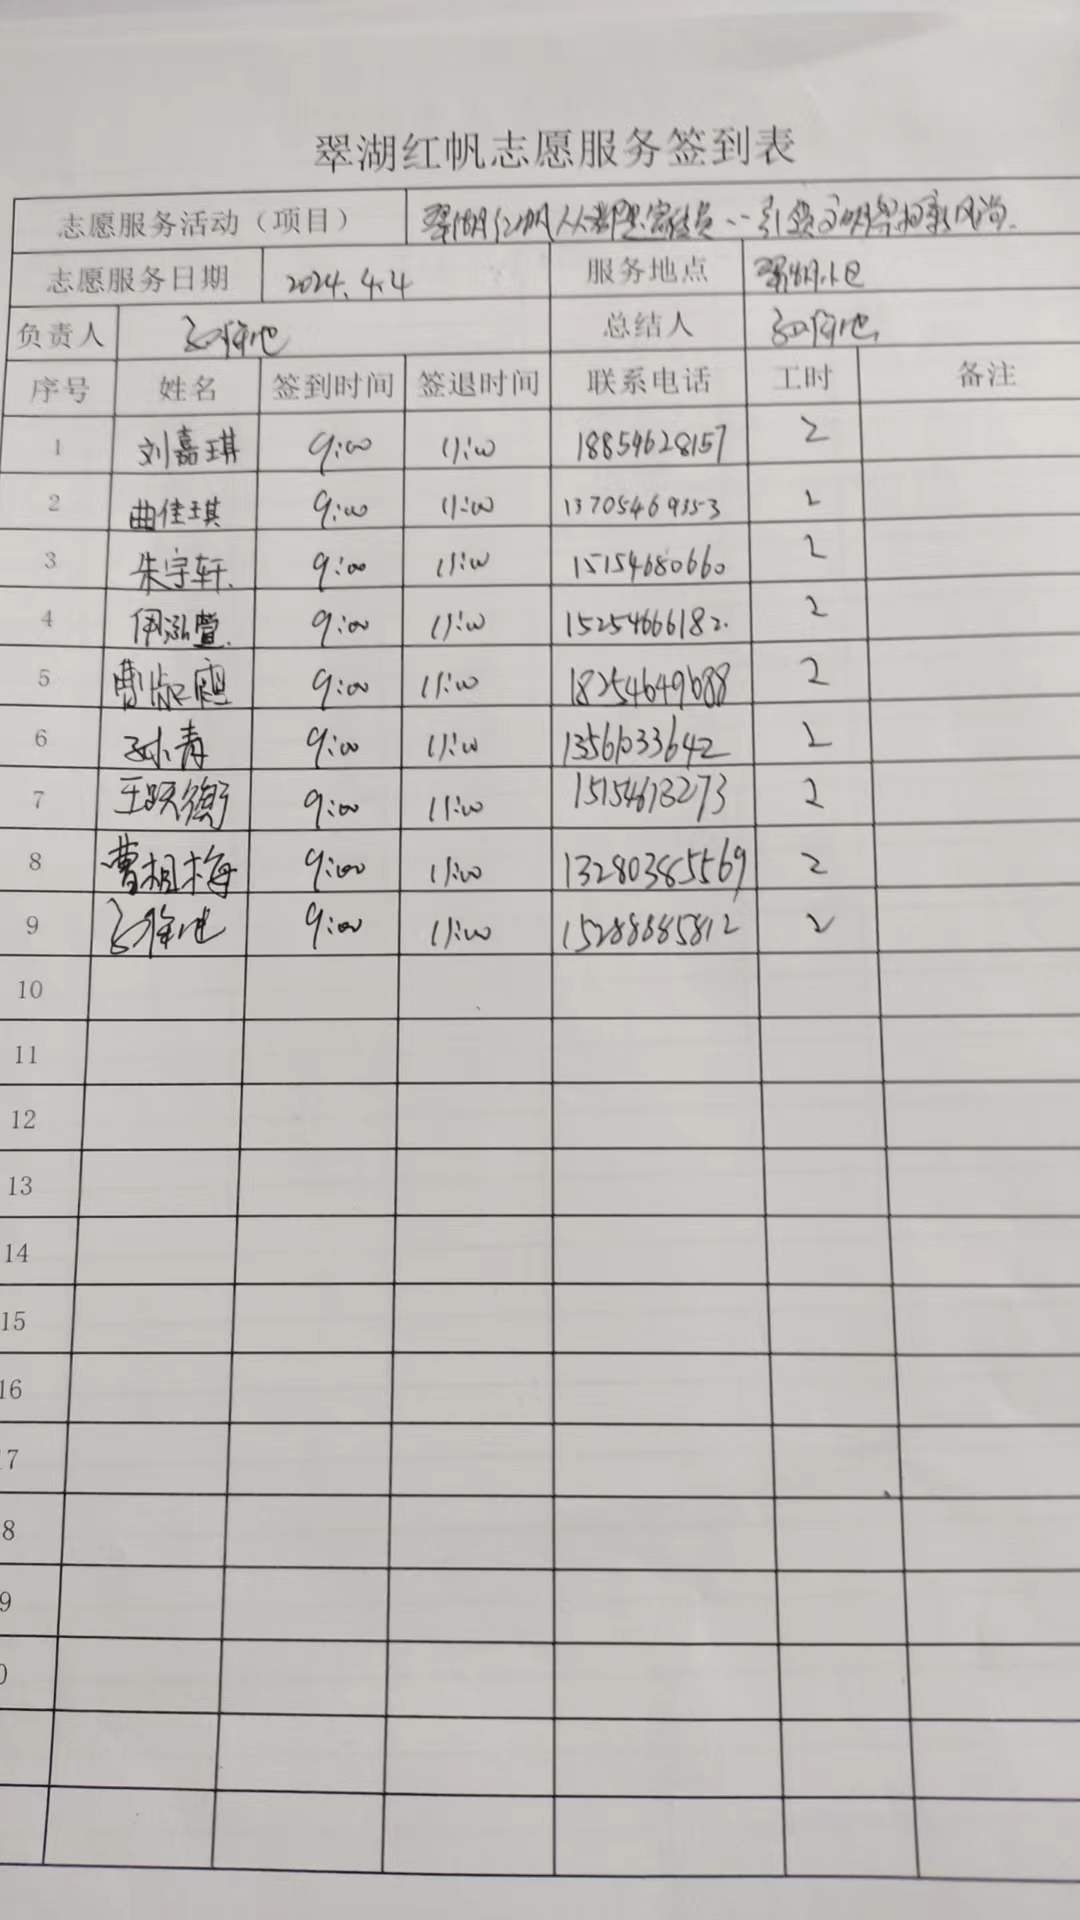 翠湖红帆志愿服务签到表
志愿服务活动（项目） 翠湖红帆 引领文明祭扫新风尚.
志愿服务日期 2024.4.4 服务地点 翠湖小区
负责人 总结人
序号 姓名 签到时间 签退时间 联系电话 工时 备注
1 刘嘉琪 9:00 11:00 18854628157 2
2 曲佳琪 9:00 11:00 13705469353 2
3 朱宇轩. 9:00 11:00 15154680660 2
4 9:00 11:00 15254666182. 2
5 9:00 11:00 18254649688 2
6 孙青 9:00 11:00 13561033642 2
7 9:00 11:00 15154613273 2
8 曹相梅 9:00 11:00 13280385569 2
9 9:00 11:00 15288885812 2
10
11
12
13
14
15
16
7
8
9
0